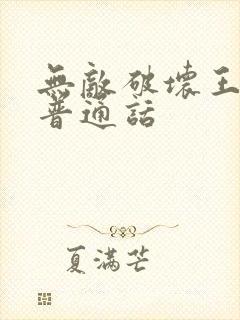 無敵破壞王
普通話
夏滿芒